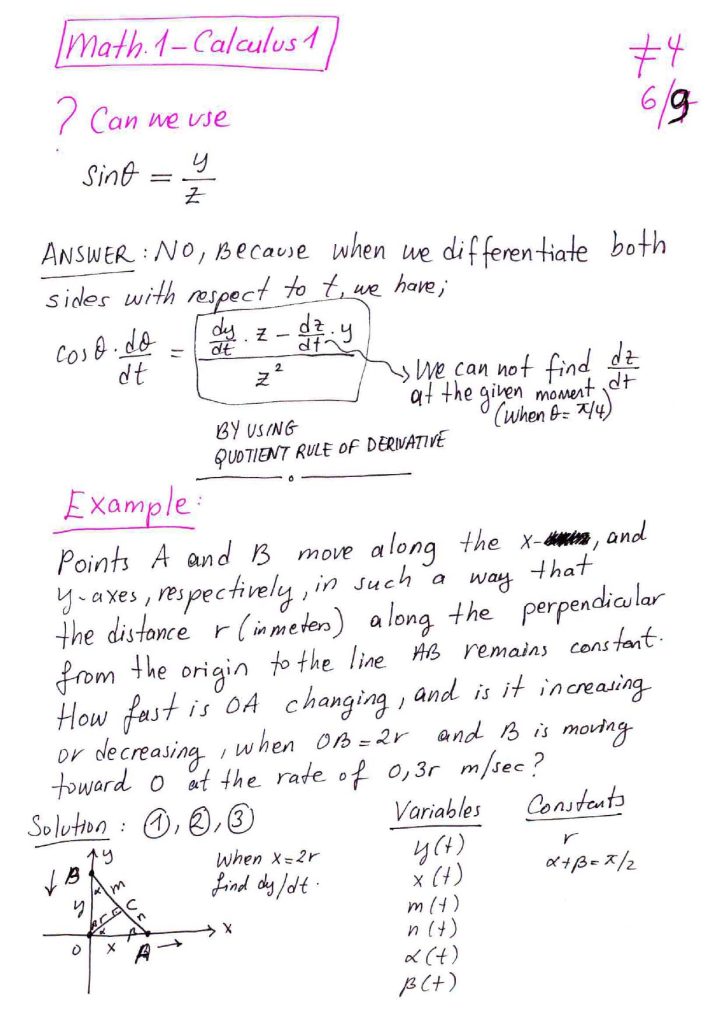 Math.1-Calculus1
#4
6/9
? Can we use
Sinθ = y/z
ANSWER: NO, Because when we differentiate both
sides with respect to t, we have;
cosθ · dθ/dt = (dy/dt · z - dz/dt · y) / z²
We can not find dz/dt
at the given moment,
(when θ = π/4)
BY USING
QUOTIENT RULE OF DERIVATIVE
Example:
Points A and B move along the x-, and
y-axes, respectively, in such a way that
the distance r (in meters) along the perpendicular
from the origin to the line AB remains constant.
How fast is OA changing, and is it increasing
or decreasing, when OB = 2r and B is moving
toward O at the rate of 0,3r m/sec?
Solution: ①, ②, ③
When x=2r
find dy/dt.
Variables
y(t)
x(t)
m(t)
n(t)
α(t)
β(t)
Constants
r
α+β = π/2
y
B
α
m
y
C
β
r
n
α
β
x
O
x
A